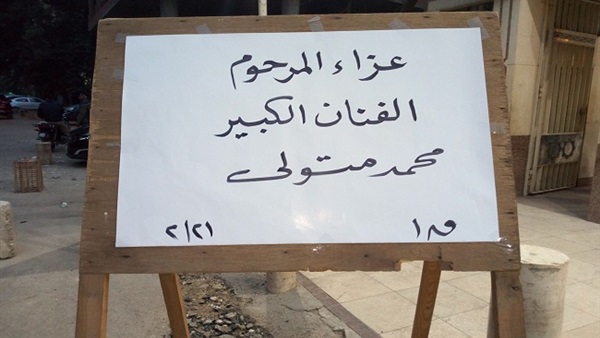 عزاء المرحوم
الفنان الكبير
محمد متولى
ق ١ ٢/٢١